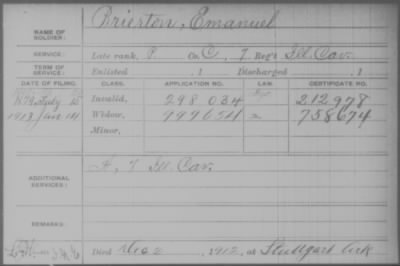 NAME OF SOLDIER: Brierton, Emanuel
SERVICE: Late rank, P. Co. C, 7 Reg't Ill. Cav.
TERM OF SERVICE: Enlisted , 1 Discharged , 1
DATE OF FILING. CLASS. APPLICATION NO. LAW. CERTIFICATE NO.
1879, July 15 Invalid, 298 034 212,978
1913 Jan 14 Widow, 999654 758674
Minor,
ADDITIONAL SERVICES: A, 7 Ill. Cav.
REMARKS:
Died Dec 2, 1912, at Stuttgart Ark